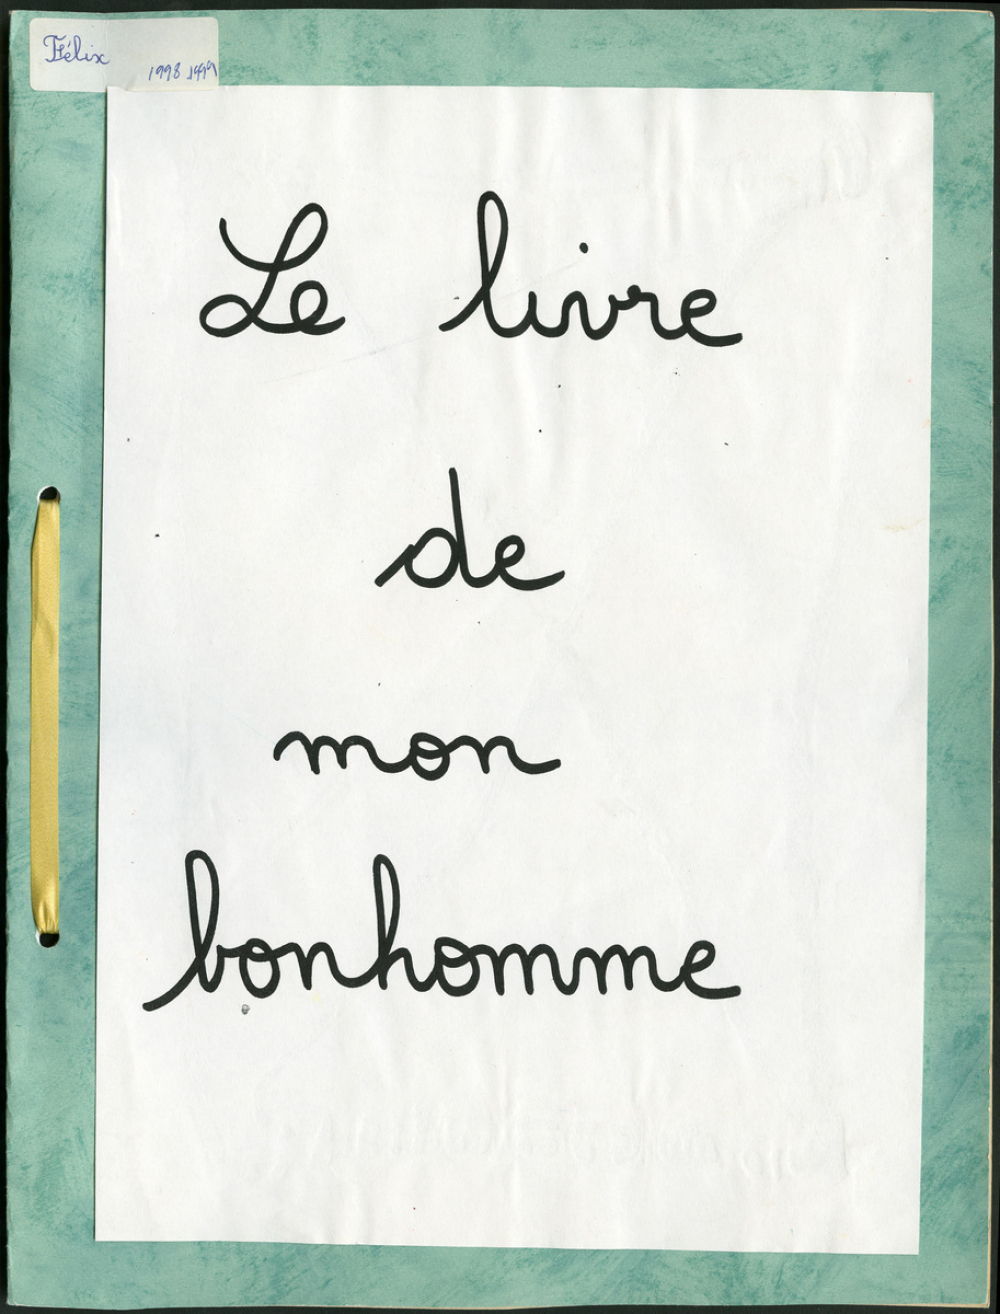 Félix
1998 1999
Le livre
de
mon
bonhomme